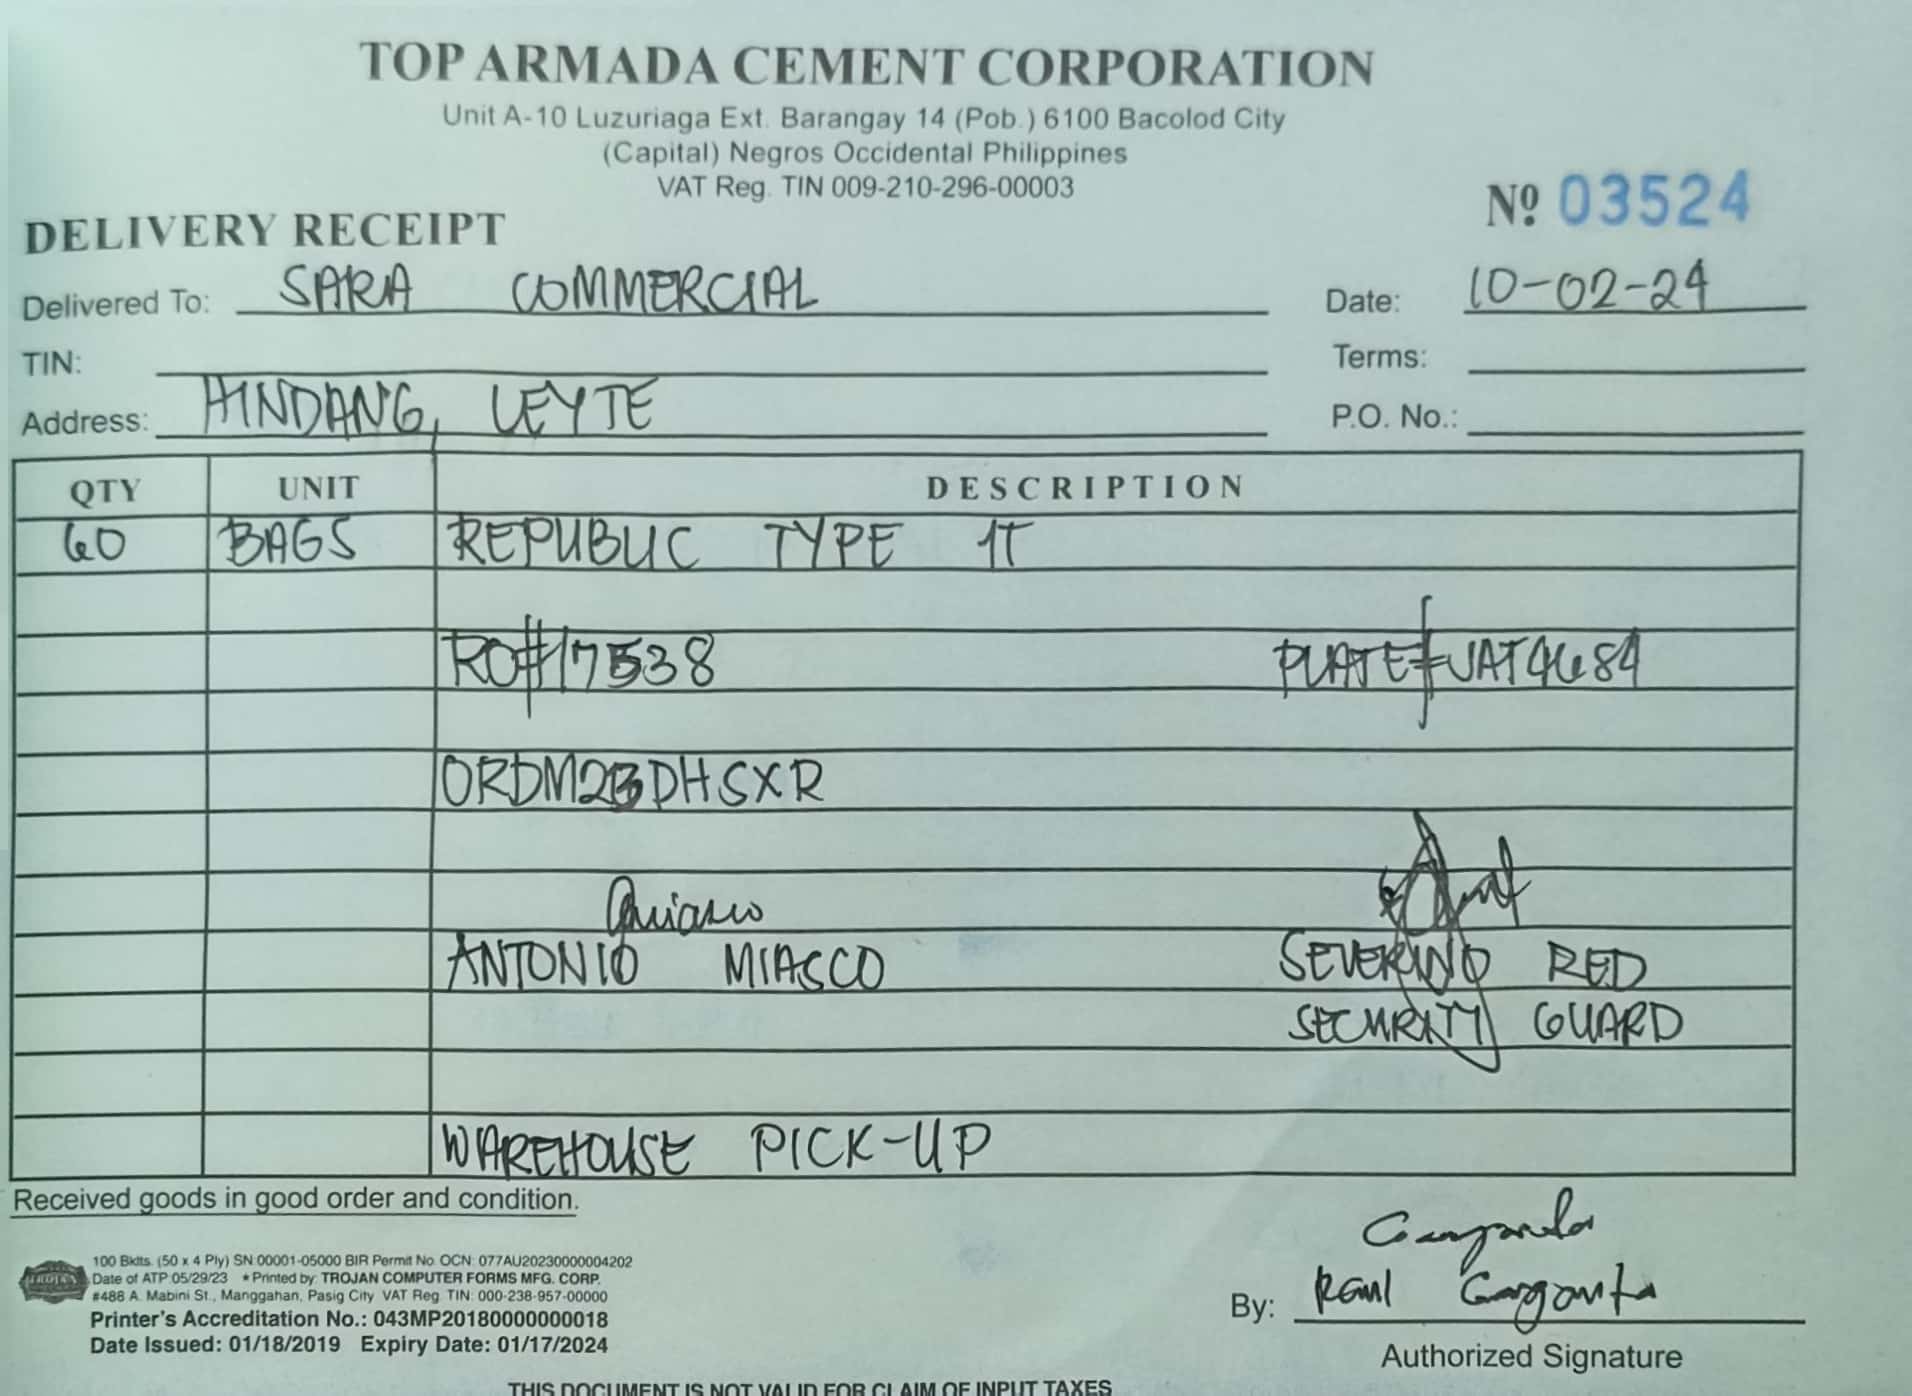 TOP ARMADA CEMENT CORPORATION
Unit A-10 Luzuriaga Ext. Barangay 14 (Pob.) 6100 Bacolod City
(Capital) Negros Occidental Philippines
VAT Reg. TIN 009-210-296-00003
Nº 03524
DELIVERY RECEIPT
Delivered To: SARA COMMERCIAL Date: 10-02-24
TIN: Terms:
Address: HINDANG, LEYTE P.O. No.:
QTY UNIT DESCRIPTION
60 BAGS REPUBLIC TYPE 1T
RO#17538 PLATE#VAT4684
ORDM23DHSXR
ANTONIO MIASCO SEVERINO RED
SECURITY GUARD
WAREHOUSE PICK-UP
Received goods in good order and condition.
TROJAN
100 Bklts. (50 x 4 Ply) SN 00001-05000 BIR Permit No. OCN: 077AU20230000004202
Date of ATP 05/29/23 * Printed by: TROJAN COMPUTER FORMS MFG. CORP.
#486 A. Mabini St., Manggahan, Pasig City VAT Reg. TIN: 000-238-957-00000
Printer's Accreditation No.: 043MP20180000000018
Date Issued: 01/18/2019 Expiry Date: 01/17/2024
By: Raul Garganta
Authorized Signature
THIS DOCUMENT IS NOT VALID FOR CLAIM OF INPUT TAXES